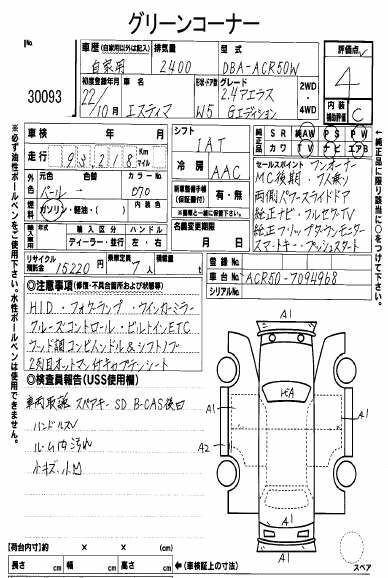 グリーンコーナー
No. 30093
車歴 (自家用以外は記入) 自家用
排気量 2400
型式 DBA-ACR50W
初度登録年月 22/10月
車名 エスティマ
形状・ドア数 W5
グレード 2.4アエラス Gエディション
2WD
4WD
評価点 4
内装補助評価 C
車検 年 月
シフト IAT
走行 93218 Km マイル
冷房 AAC
純正品 SR 純AW PS PW
カワ TV ナビ エアB
外色 元色 色替 カラーNo
パール 070
燃料 ガソリン・軽油・( 内装色
新車整備手帳 (保証書付) 有・無
名義変更期限 月 日
車 輸入区分 ハンドル
ディーラー・並行 左・右
リサイクル預託金 15220円
乗車定員 7人
積載量
セールスポイント ワンオーナー
MC後期・7人乗り
両側パワースライドドア
純正ナビ・フルセグTV
純正フリップダウンモニター
スマートキー・プッシュスタート
登録No.
車台No. ACR50-7094968
シリアルNo.
◎注意事項 (修復・不具合箇所および状態等)
HID・フォグランプ・ウインカーミラー
クルーズコントロール・ビルトインETC
ウッド調コンビハンドル&シフトノブ
2列目オットマン付キャプテンシート
◎検査員報告 (USS使用欄)
車両取説 スペアキー SD B-CAS後日
ハンドルスレ
ルーム内汚れ
小キズ・小凹
A1
A1
A1
A2
A1
A1
【荷台内寸】約 × × (cm)
長さ cm 幅 cm 高さ cm ←(車検証上の寸法)
スペア
※必ず油性ボールペンをご使用下さい。水性ボールペンは使用できません。
←純正品に限り該当に○をつけて下さい。